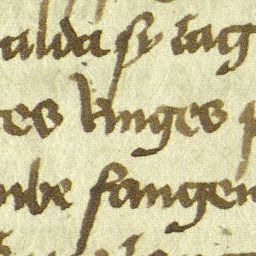 alda sy lag
es kinges p
mbe fangen